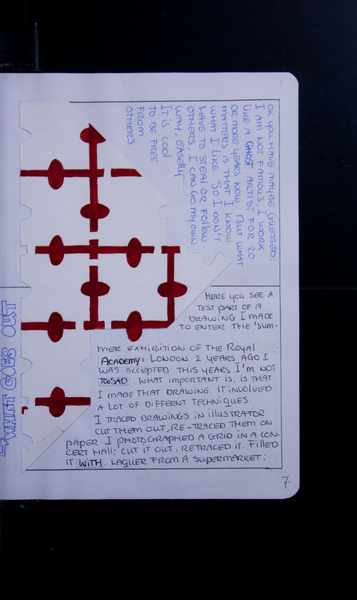 OK YOU HAVE MAYBE GUESSED,
I AM NOT FAMOUS. I WORK
LIKE A GHOST ARTIST FOR 20
OR MORE YEARS NOW. BUT WHAT
MATTERS IS THAT I KNOW
WHAT I LIKE SO I DON'T
HAVE TO STEAL OR FOLLOW
OTHERS. I CAN GO MY OWN
WAY, EASELLY
IT IS COOL
TO BE FREE
FROM
OTHERS
HERE YOU SEE A
TEST PART OF A
DRAWING I MADE
TO ENTER THE 'SUM-
MER EXHIBITION OF THE ROYAL
ACADEMY, LONDON 2 YEARS AGO I
WAS ACCEPTED. THIS YEARS I'M NOT
TOO SAD. WHAT IMPORTANT IS, IS THAT
I MADE THAT DRAWING. IT INVOLVED
A LOT OF DIFFERNT TECHNIQUES.
I TRACED DRAWINGS IN ILLUSTRATOR
CUT THEM OUT, RE-TRACED THEM ON
PAPER I PHOTOGRAPHED A GRID IN A CON-
CERT HALL; CUT IT OUT. RETRACED IT. FILLED
IT WITH LAQUER FROM A SUPERMARKET.
WHAT GOES OUT
7